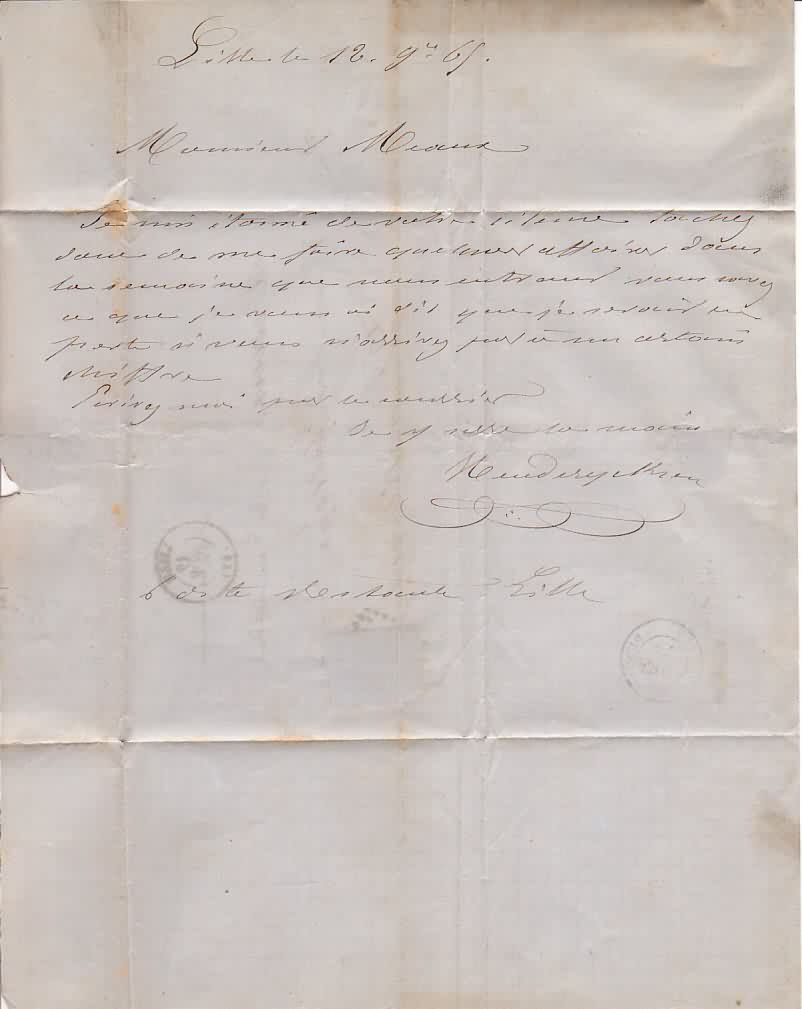 Lille le 12. 9bre 65.
Monsieur Meaux
Je suis étonné de votre silence tachez
donc de me faire quelques affaires dans
la semaine que nous entrons vous savez
ce que je vous ai dit que je serais en
perte si vous n'arrivez pas à un certain
chiffre
Ecrivez moi par le courrier
Je vs serre la main
Poste Restante Lille